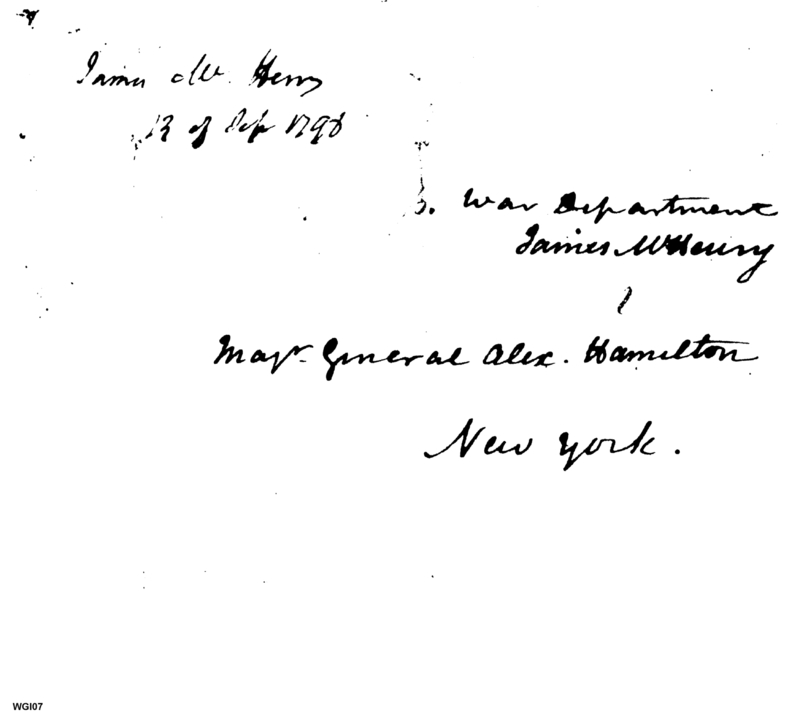 James Mc. Henry
13 of Sep 1798
War Department
James McHenry
Majr. General Alex. Hamilton
New York.
WGI07